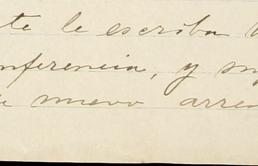 te le escriba
nferencia, y
nuevo arre